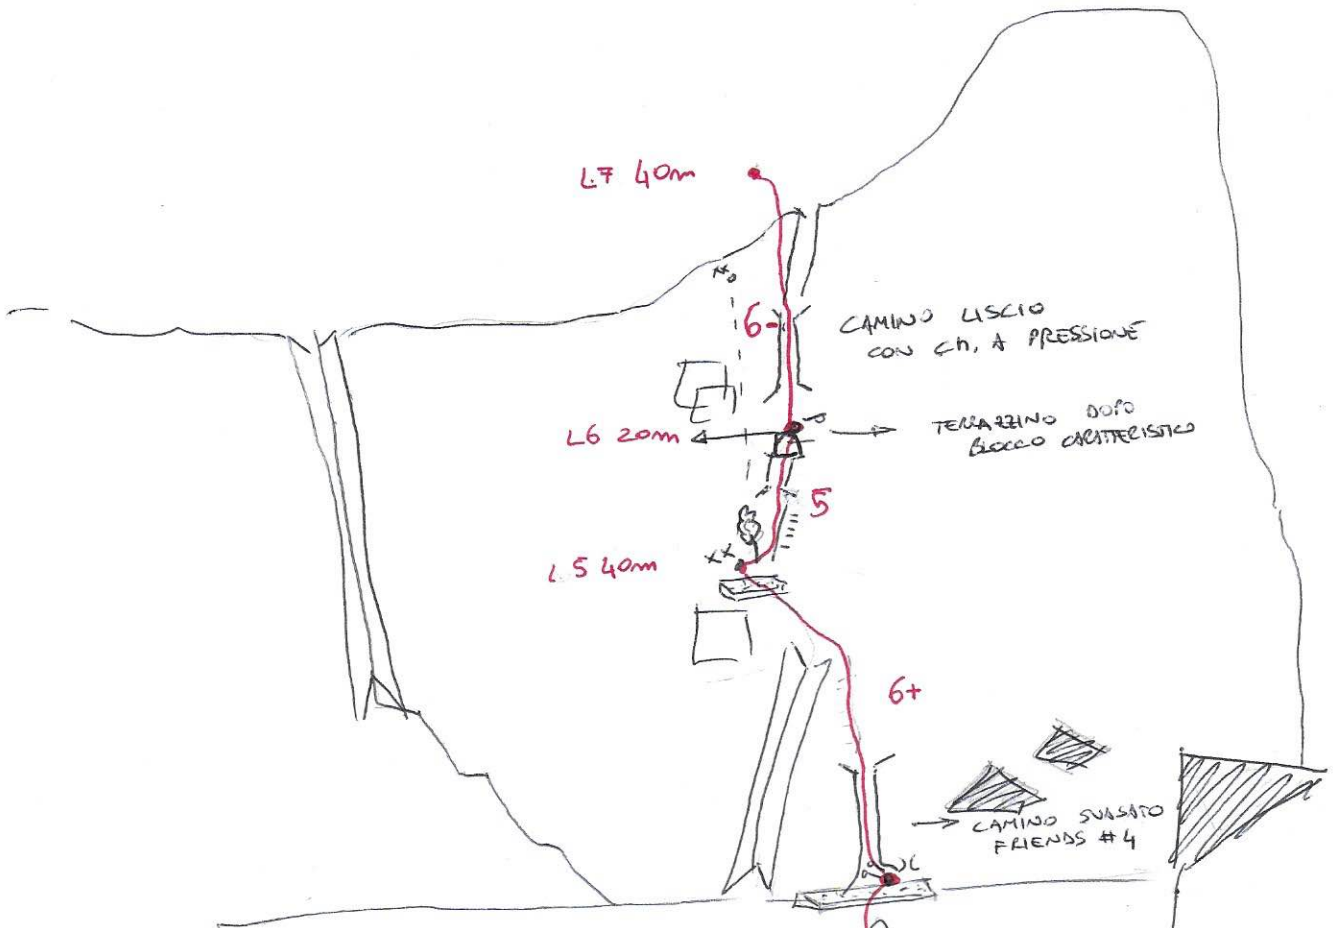 L7 40m
6-
CAMINO LISCIO
CON Ch. A PRESSIONE
L6 20m
TERRAZZINO DOPO
BLOCCO CARATTERISTICO
5
XX
L5 40m
6+
CAMINO SVASATO
FRIENDS #4